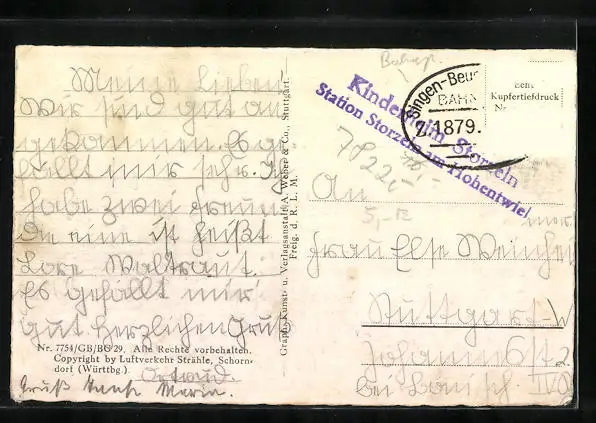 Meine Lieben
Wir sind gut an
gekommen. Es ge
fällt mir sehr. Ich
habe zwei Freun
die eine ist heißt
Lore Waltraut.
Es gefällt mir
gut Herzlichen Gruß
Ortrud.
Gruß Tante Maria.
Nr. 7754/GB/BG 29. Alle Rechte vorbehalten.
Copyright by Luftverkehr Strähle, Schorn-
dorf (Württbg.)
Graph. Kunst- u. Verlagsanstalt A. Weber & Co., Stuttgart.
Freig. d. R. L. M.
Kinderheim Storzeln
Station Storzeln am Hohentwiel
Singen-Beu
BAHN
Z. 1879.
Echt
Kupfertiefdruck
Nr.
An
Frau Else
Stuttgart-W
Johannesst
bei